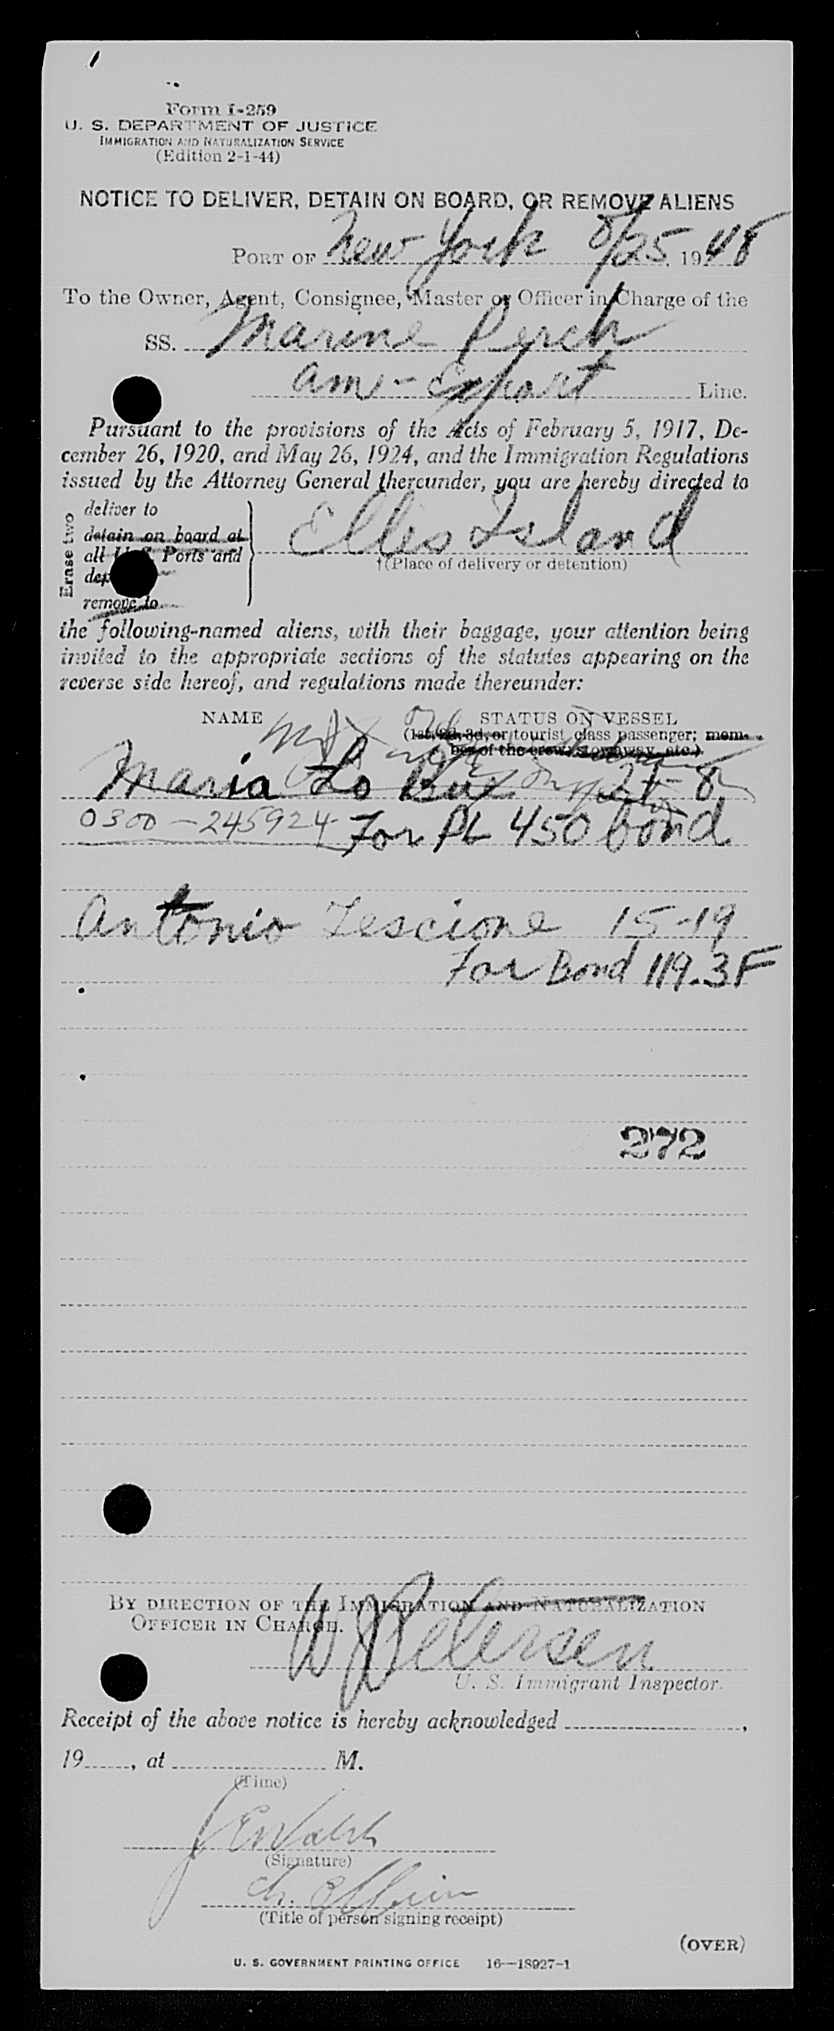 Form I-259
U. S. DEPARTMENT OF JUSTICE
IMMIGRATION AND NATURALIZATION SERVICE
(Edition 2-1-44)
NOTICE TO DELIVER, DETAIN ON BOARD, OR REMOVE ALIENS
PORT OF New York 8/25, 1948
To the Owner, Agent, Consignee, Master or Officer in Charge of the
SS. Marine Perch
Am-Export Line.
Pursuant to the provisions of the Acts of February 5, 1917, De-
cember 26, 1920, and May 26, 1924, and the Immigration Regulations
issued by the Attorney General thereunder, you are hereby directed to
Erase two
deliver to
detain on board at
all U.S. Ports and
remove to
Ellis Island
†(Place of delivery or detention)
the following-named aliens, with their baggage, your attention being
invited to the appropriate sections of the statutes appearing on the
reverse side hereof, and regulations made thereunder:
NAME STATUS ON VESSEL
(1st, 2d, 3d, or tourist class passenger; mem-
ber of the crew, stowaway, etc.)
Maria Lo 21-8
0300-245924 For PL 450 bond
Antonio Tescione 15-19
For Bond 119.3F
272
BY DIRECTION OF THE IMMIGRATION AND NATURALIZATION
OFFICER IN CHARGE.
W Petersen
U. S. Immigrant Inspector.
Receipt of the above notice is hereby acknowledged ,
19 , at M.
(Time)
(Signature)
(Title of person signing receipt)
(OVER)
U. S. GOVERNMENT PRINTING OFFICE 16—18927-1